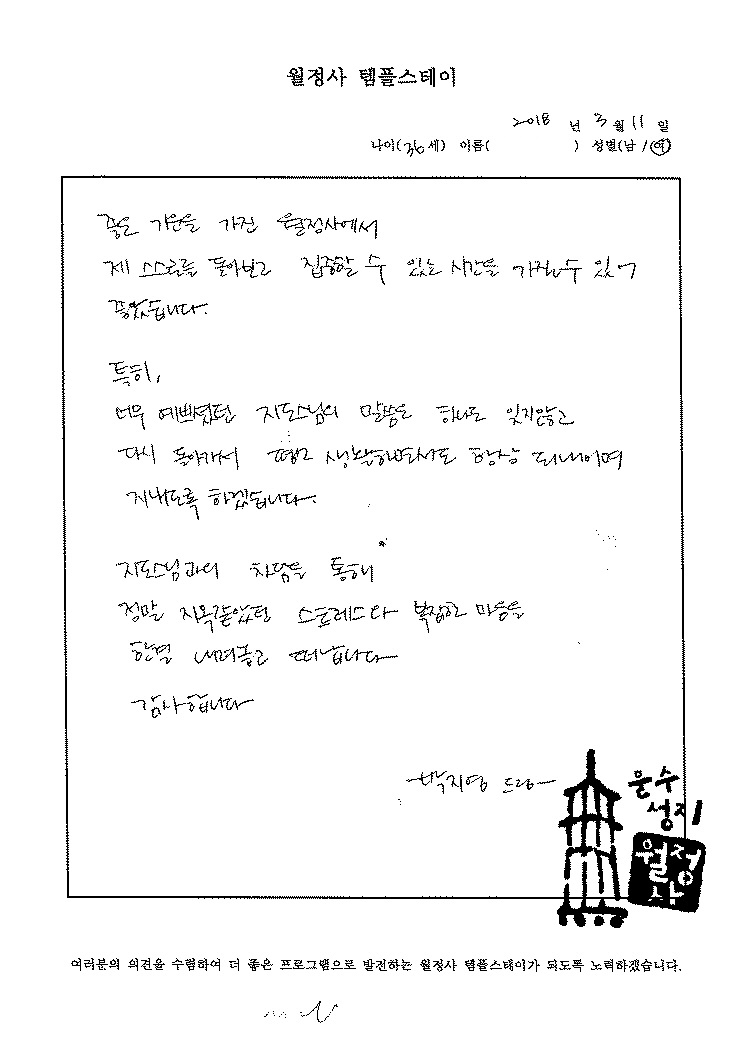 월정사 템플스테이
2018 년 3 월 11 일
나이(36 세) 이름( ) 성별(남 / 여)
좋은 기운을 가진 월정사에서
제 스스로를 돌아보고 집중할 수 있는 시간을 가질 수 있어
좋았습니다.
특히,
너무 예쁘셨던 지도스님의 말씀은 하나도 잊지않고
다시 돌아가서 생활하면서도 항상 되내이며
지내도록 하겠습니다.
지도스님과의 차담을 통해
정말 지옥같았던 스트레스와 복잡한 마음을
한결 내려놓고 떠납니다
감사합니다
박지영 드림
문수
성지
월정
사
여러분의 의견을 수렴하여 더 좋은 프로그램으로 발전하는 월정사 템플스테이가 되도록 노력하겠습니다.